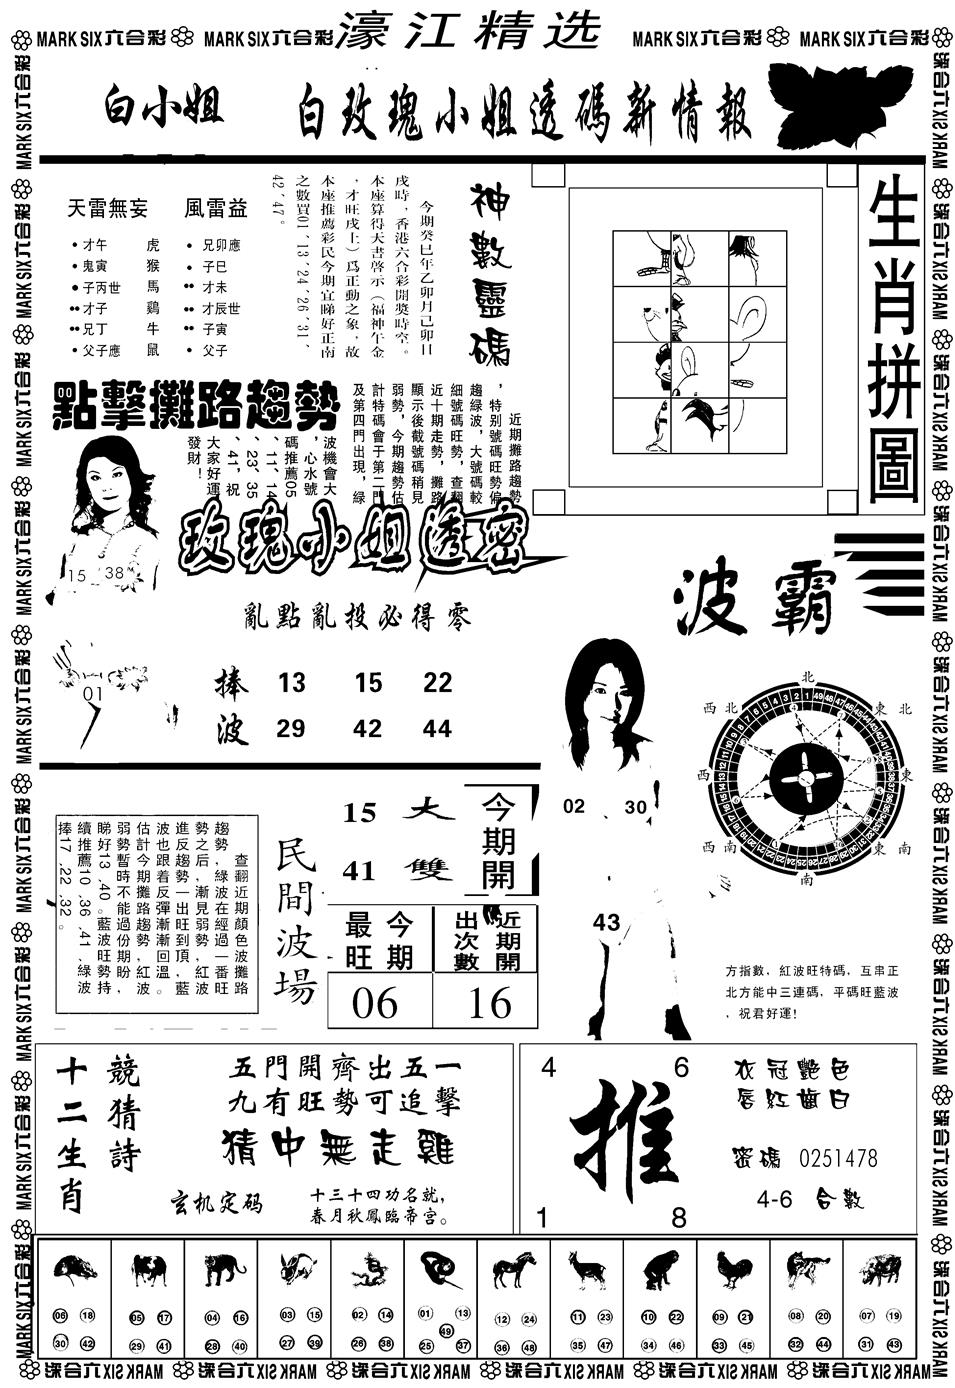 MARK SIX六合彩 MARK SIX六合彩 濠江精选 MARK SIX六合彩 MARK SIX六合彩
白小姐 白玫瑰小姐透碼新情報
天雷無妄 風雷益
•才午 虎 •兄卯應
•鬼寅 猴 •子巳
●子丙世 馬 ••才未
••才子 鷄 ••才辰世
••兄丁 牛 ••子寅
•父子應 鼠 •父子
神數靈碼
今期癸巳年乙卯月己卯日
戌時，香港六合彩開獎時空。
本座算得天書啓示（福神午金
，才旺戌土）爲正動之象，故
本座推薦彩民今期宜睇好正南
之數買01、13、24、26、31、
42、47。
生肖拼圖
點擊攤路趨勢
近期攤路趨勢
，特别號碼旺勢偏
趨緑波，大號碼較
細號碼旺勢，查翻
近十期走勢，攤路
顯示後截號碼稍見
弱勢，今期趨勢估
計特碼會于第二門
及第四門出現，緑
波機會大
，心水號
碼推薦05
、11、14
、23、35
、41，祝
大家好運
發財！
15 38
玫瑰小姐透密
亂點亂投必得零
01
捧 13 15 22
波 29 42 44
波霸
02 30
43
北
西北 東北
西 東
西南 東南
南
方指數，紅波旺特碼，互串正
北方能中三連碼，平碼旺藍波
，祝君好運！
查翻近期顔色波攤路
趨勢，緑波在經過一番旺
勢之后，漸見弱勢，紅波
進反趨勢一出旺到頂，藍
波也跟着反彈漸漸回溫。
估計今期攤路趨勢紅波
弱勢暫時不能過份期盼，
睇好13、40。藍波旺勢持
續推薦10、36、41、緑波
捧17、22、32。
民間波場
15 大 今期開
41 雙
最旺 今期
06
出次數 近期開
16
十二生肖
競猜詩
五門開齊出五一
九有旺勢可追擊
猜中無走雞
玄机定码 十三十四功名就，
春月秋鳳臨帝宫。
4 6
推
1 8
衣冠艷色
唇紅齒白
密碼 0251478
4-6 合數
06 18 05 17 04 16 03 15 02 14 01 13 12 24 11 23 10 22 09 21 08 20 07 19
30 42 29 41 28 40 27 39 26 38 25 49 37 36 48 35 47 34 46 33 45 32 44 31 43
MARK SIX六合彩 MARK SIX六合彩 MARK SIX六合彩 MARK SIX六合彩 MARK SIX六合彩 MARK SIX六合彩